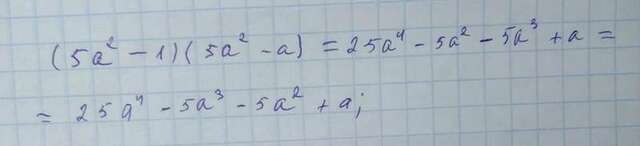 (5a² - 1)(5a² - a) = 25a⁴ - 5a² - 5a³ + a =
= 25a⁴ - 5a³ - 5a² + a;